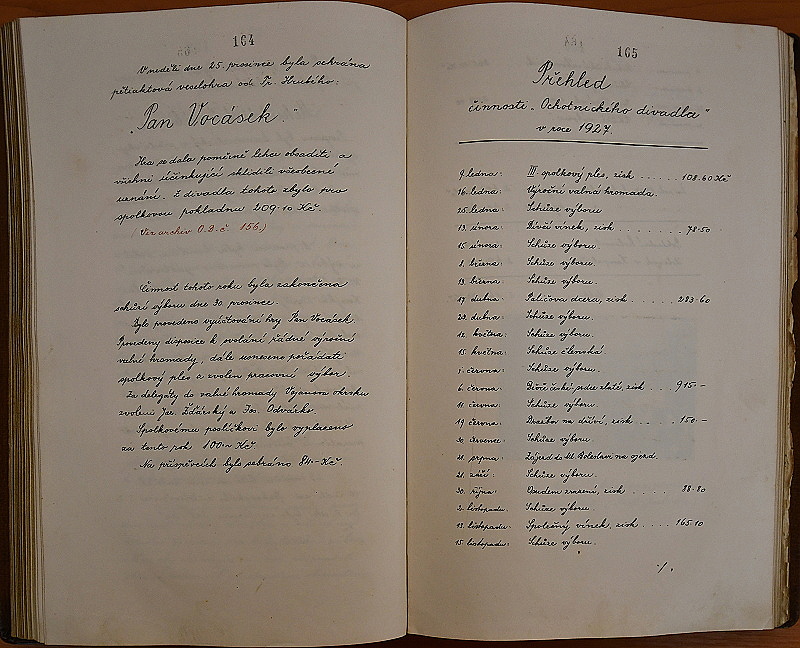 164
V neděli dne 25. prosince byla sehrána
pětiaktová veselohra od Fr. Hrubého:
"Pan Vocásek."
Hra se dala poměrně lehce obsaditi a
všichni účinkující sklidili všeobecné
uznání. Z divadla tohoto zbylo pro
spolkovou pokladnu 209.10 Kč.
(Viz archiv O.D.č. 156.)
Činnost tohoto roku byla zakončena
schůzí výboru dne 30. prosince.
Bylo provedeno vyúčtování hry Pan Vocásek.
Provedeny disposice k svolání řádné výroční
valné hromady, dále usneseno pořádati
spolkový ples a zvolen pracovní výbor.
Za delegáty do valné hromady Vojanova okrsku
zvoleni Jar. Žďárský a Jos. Odvárko.
Spolkovému poslíčkovi bylo vyplaceno
za tento rok 100.- Kč.
Na příspěvcích bylo sebráno 84.- Kč.
165
Přehled
činnosti "Ochotnického divadla"
v roce 1927.
9. ledna: III. spolkový ples, zisk ..... 108.60 Kč
16. ledna: Výroční valná hromada.
25. ledna: Schůze výboru
13. února: Dívčí vínek, zisk ....... 78.50
15. února: Schůze výboru.
8. března: Schůze výboru.
19. března: Schůze výboru.
17. dubna: Paličova dcera, zisk ..... 283.60
29. dubna: Schůze výboru.
12. května: Schůze výboru.
15. května: Schůze členská
června: Schůze výboru.
6. června: zisk .... 915.-
11. června: Schůze výboru.
19. června: zisk .... 150.-
30. červenec: Schůze výboru.
srpna: Zájezd do Ml. Boleslavi na sjezd.
21. září: Schůze výboru.
30. října: Osudem zrazeni, zisk .... 88.80
2. listopadu: Schůze výboru.
13. listopadu: Společný vínek, zisk .... 165.10
15. listopadu: Schůze výboru.
./.